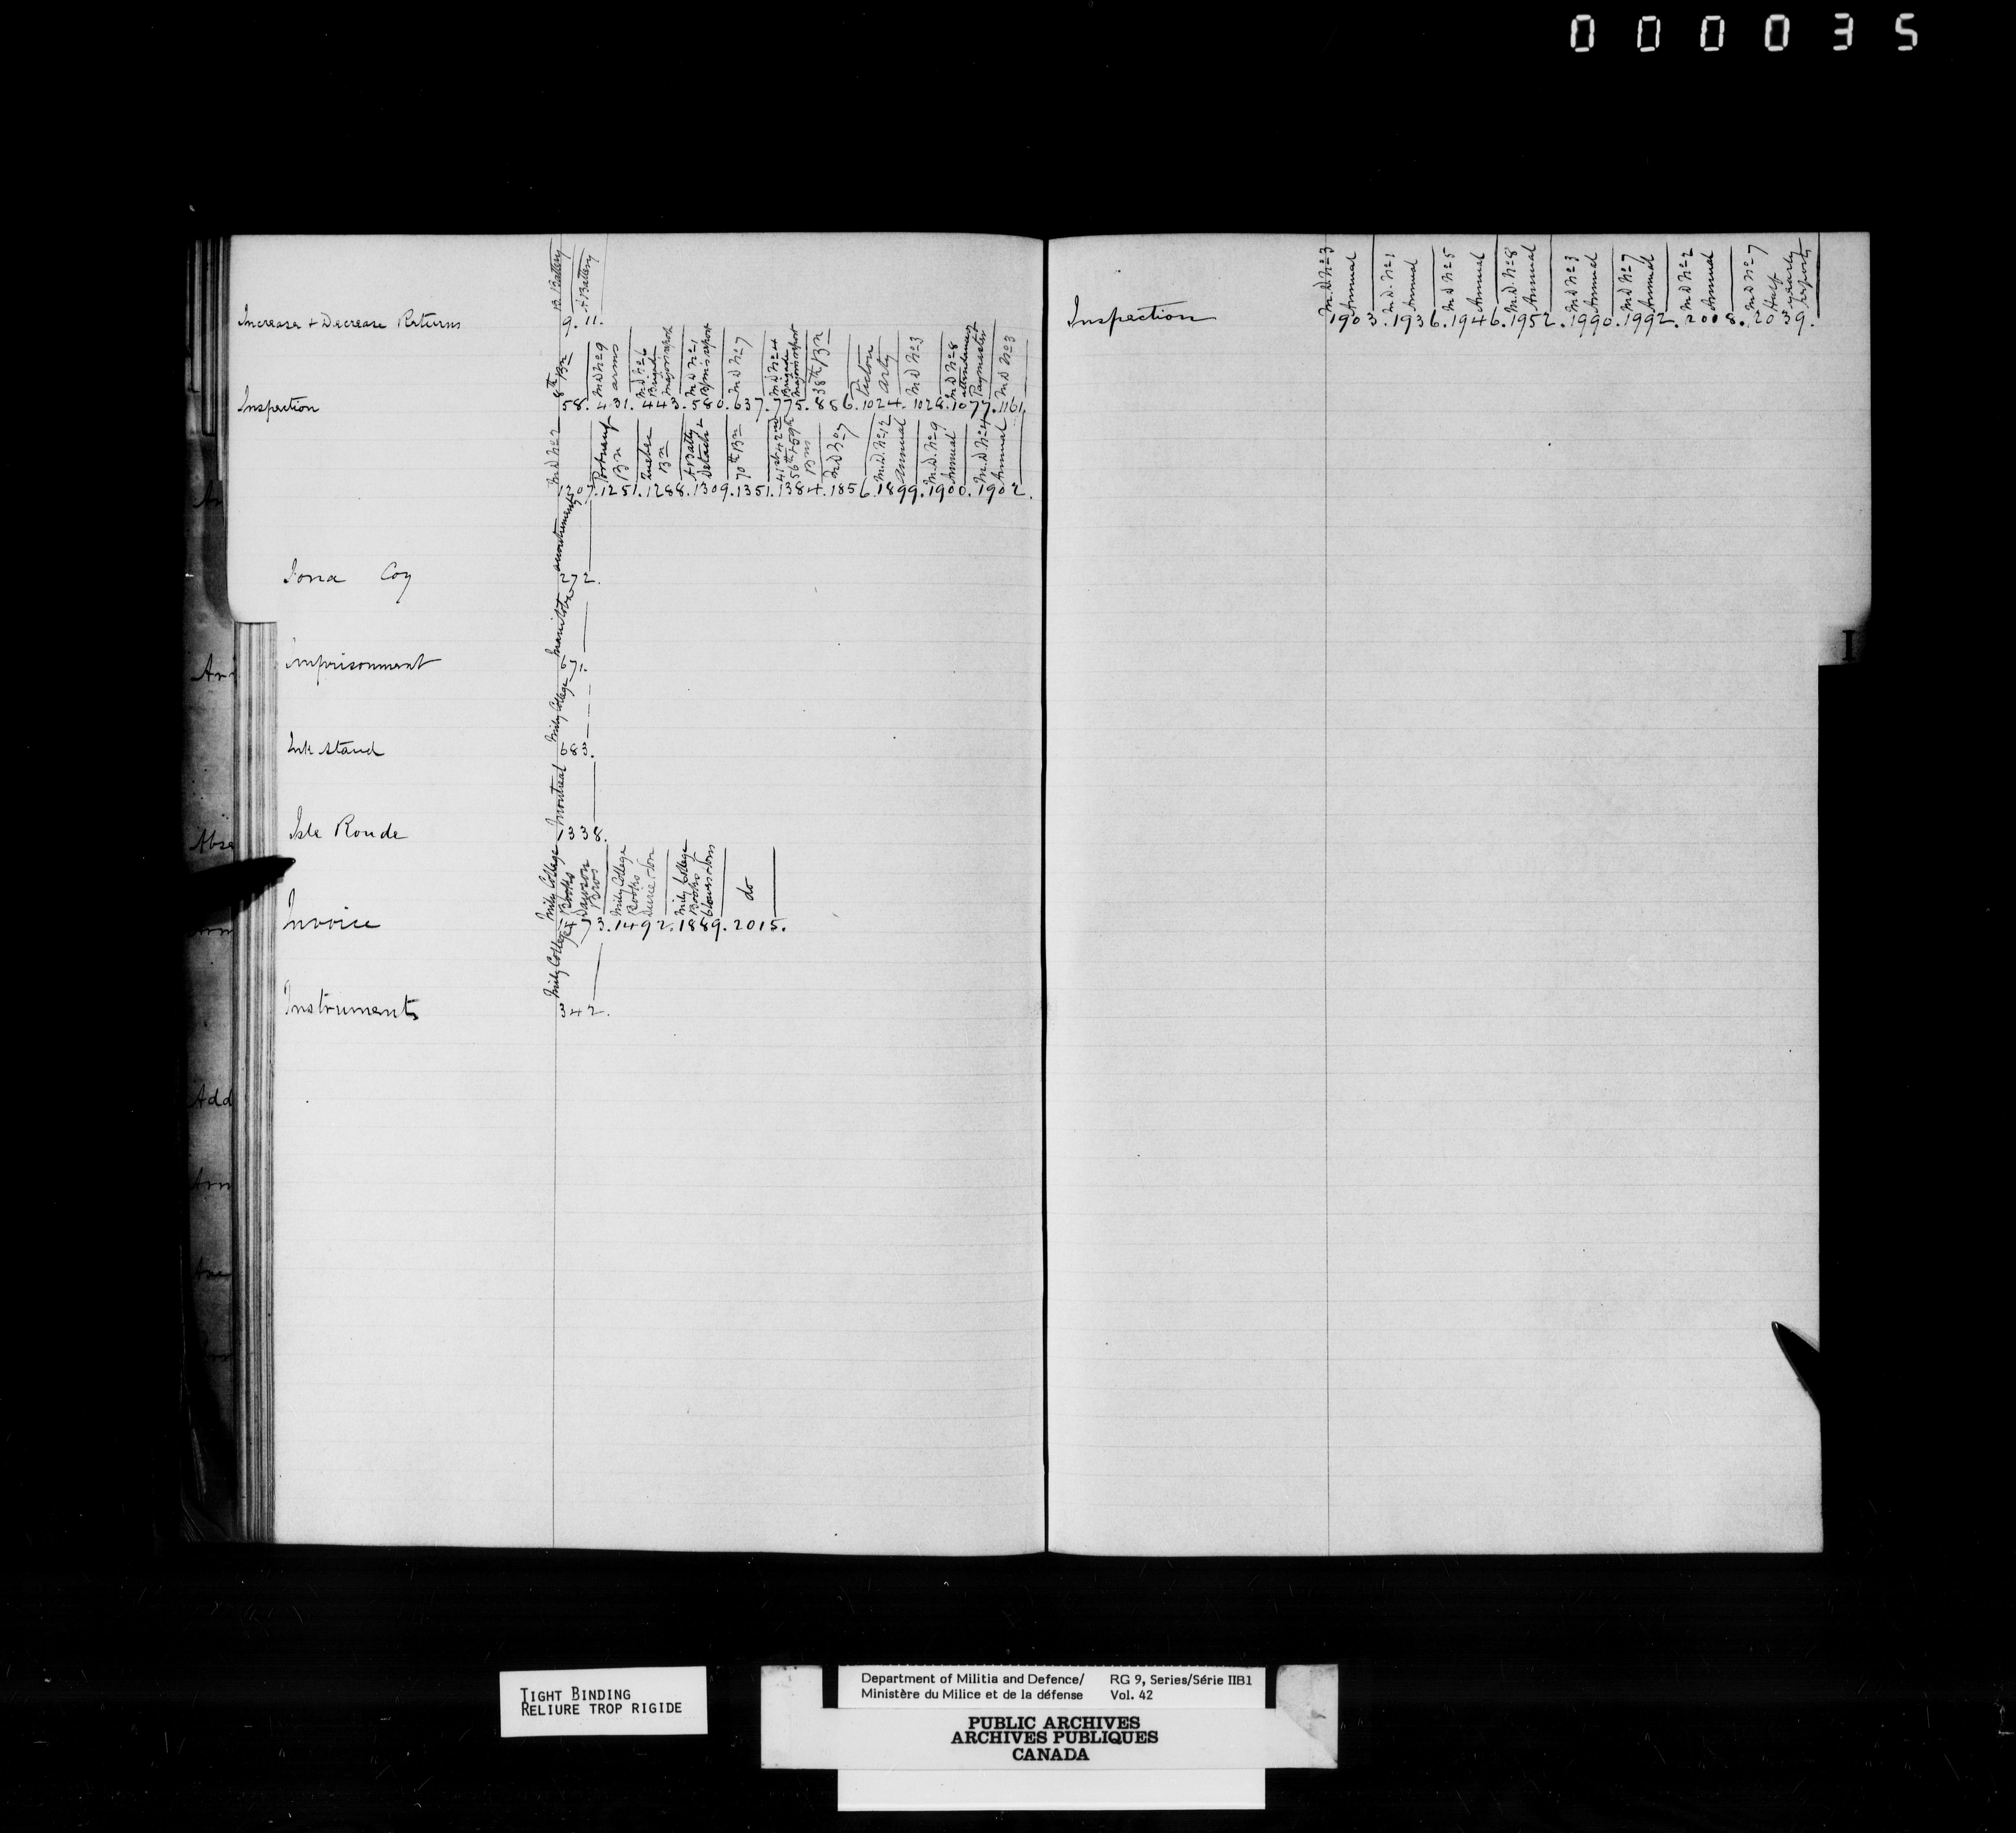 000035
B Battery
A Battery
Increase & Decrease Returns 9. 11.
8th Bn
M D No 9 arms
M D No 6 Brigade Majors report
M D No 1 B/m's report
M D No 7
M D No 4 Brigade Majors report
38th Bn
Picton Arty
M D No 3
M D No 8 attendances Paymaster
M D No 3
Inspection 58. 431. 443. 580. 637. 775. 886. 1024. 1028. 1077. 1161.
M D No 2
Portneuf Bn
Quebec Bn
A Batty Detacht
70th Bn
41st 42nd 56th & 59th Bns
M D No 7
M.D. No 12 annual
M.D. No 9 Annual
M.D. No 4 Annual
1207. 1251. 1288. 1309. 1351. 1384. 1856. 1899. 1900. 1902.
accoutrements
Iona Coy 272.
Manitoba
Imprisonment 671.
Mily College
Ink stand 683.
Montreal
Isle Ronde 1338.
Mily College Books Dawson Bros
Mily College Books Durie & Son
Mily College Books Clowes & Sons
do
Invoice 1473. 1492. 1889. 2015.
Mily College
Instruments 342.
M.D. No 3 Annual
M.D. No 1 Annual
M D No 5 Annual
M.D. No 8 Annual
M D No 3 Annual
M D No 7 Annual
M D No 2 Annual
M D No 7 Half yearly reports
Inspection 1903. 1936. 1946. 1952. 1990. 1992. 2008. 2039.
I
TIGHT BINDING
RELIURE TROP RIGIDE
Department of Militia and Defence/ RG 9, Series/Série IIB1
Ministère du Milice et de la défense Vol. 42
PUBLIC ARCHIVES
ARCHIVES PUBLIQUES
CANADA